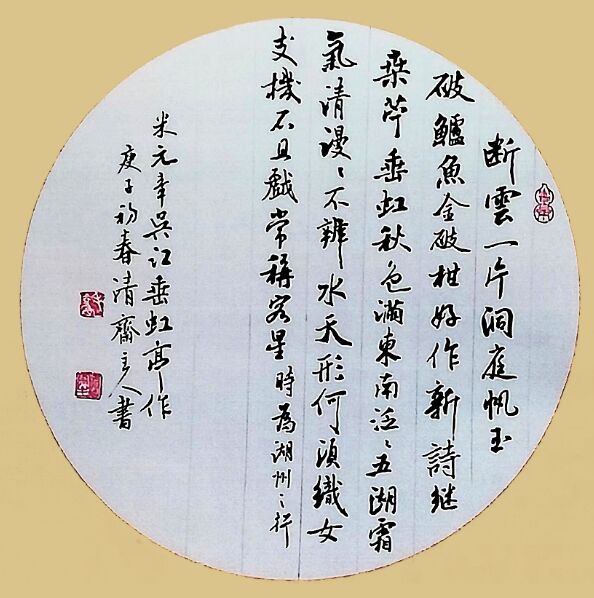 断雲一片洞庭帆玉
破鱸魚金破柑好作新詩继
桑苧垂虹秋色滿東南泛〻五湖霜
氣清漫〻不辨水天形何須織女
支機石且戲常稱客星時為湖州之行
米元章吳江垂虹亭作
庚子初春清齋主人書